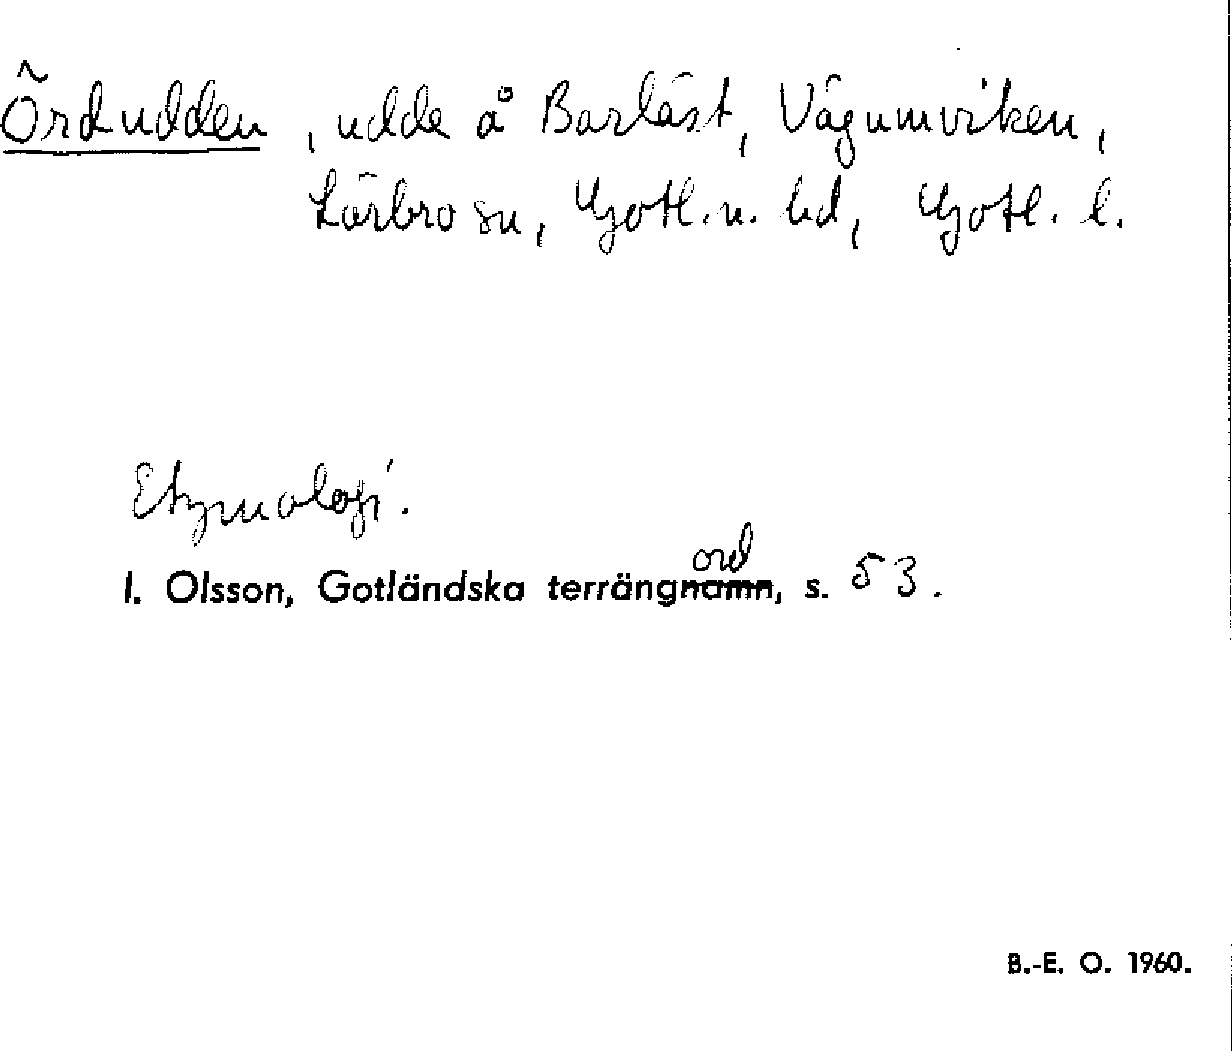 Õrdudden, udde å Barläst, Vägumviken,
Lärbro sn, Gotl. n. hd, Gotl. l.
Etymologi.
I. Olsson, Gotländska terrängnamn ord, s. 53.
B.-E. O. 1960.